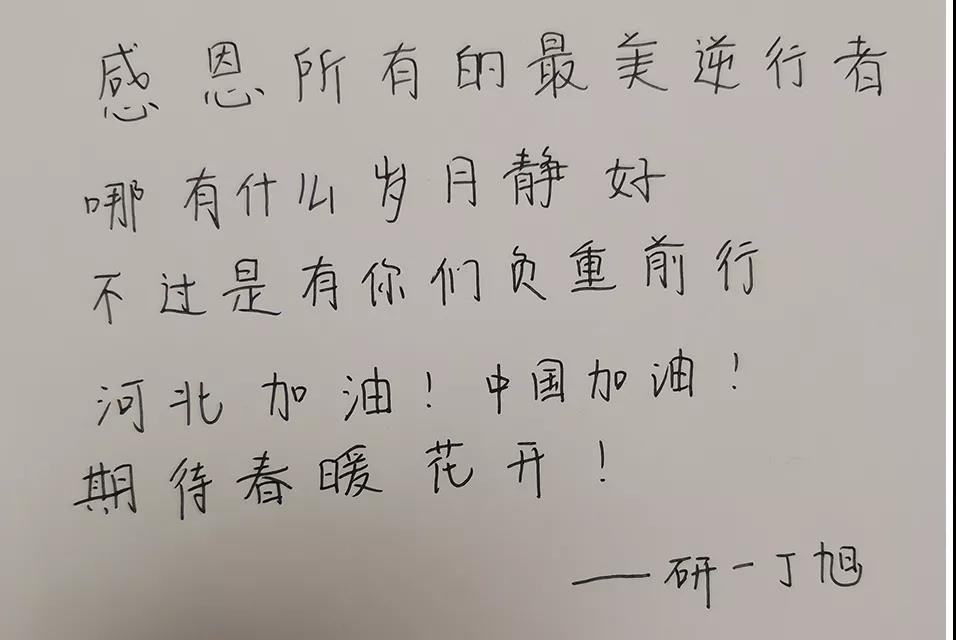 感恩所有的最美逆行者
哪有什么岁月静好
不过是有你们负重前行
河北加油！中国加油！
期待春暖花开！
——研一丁旭